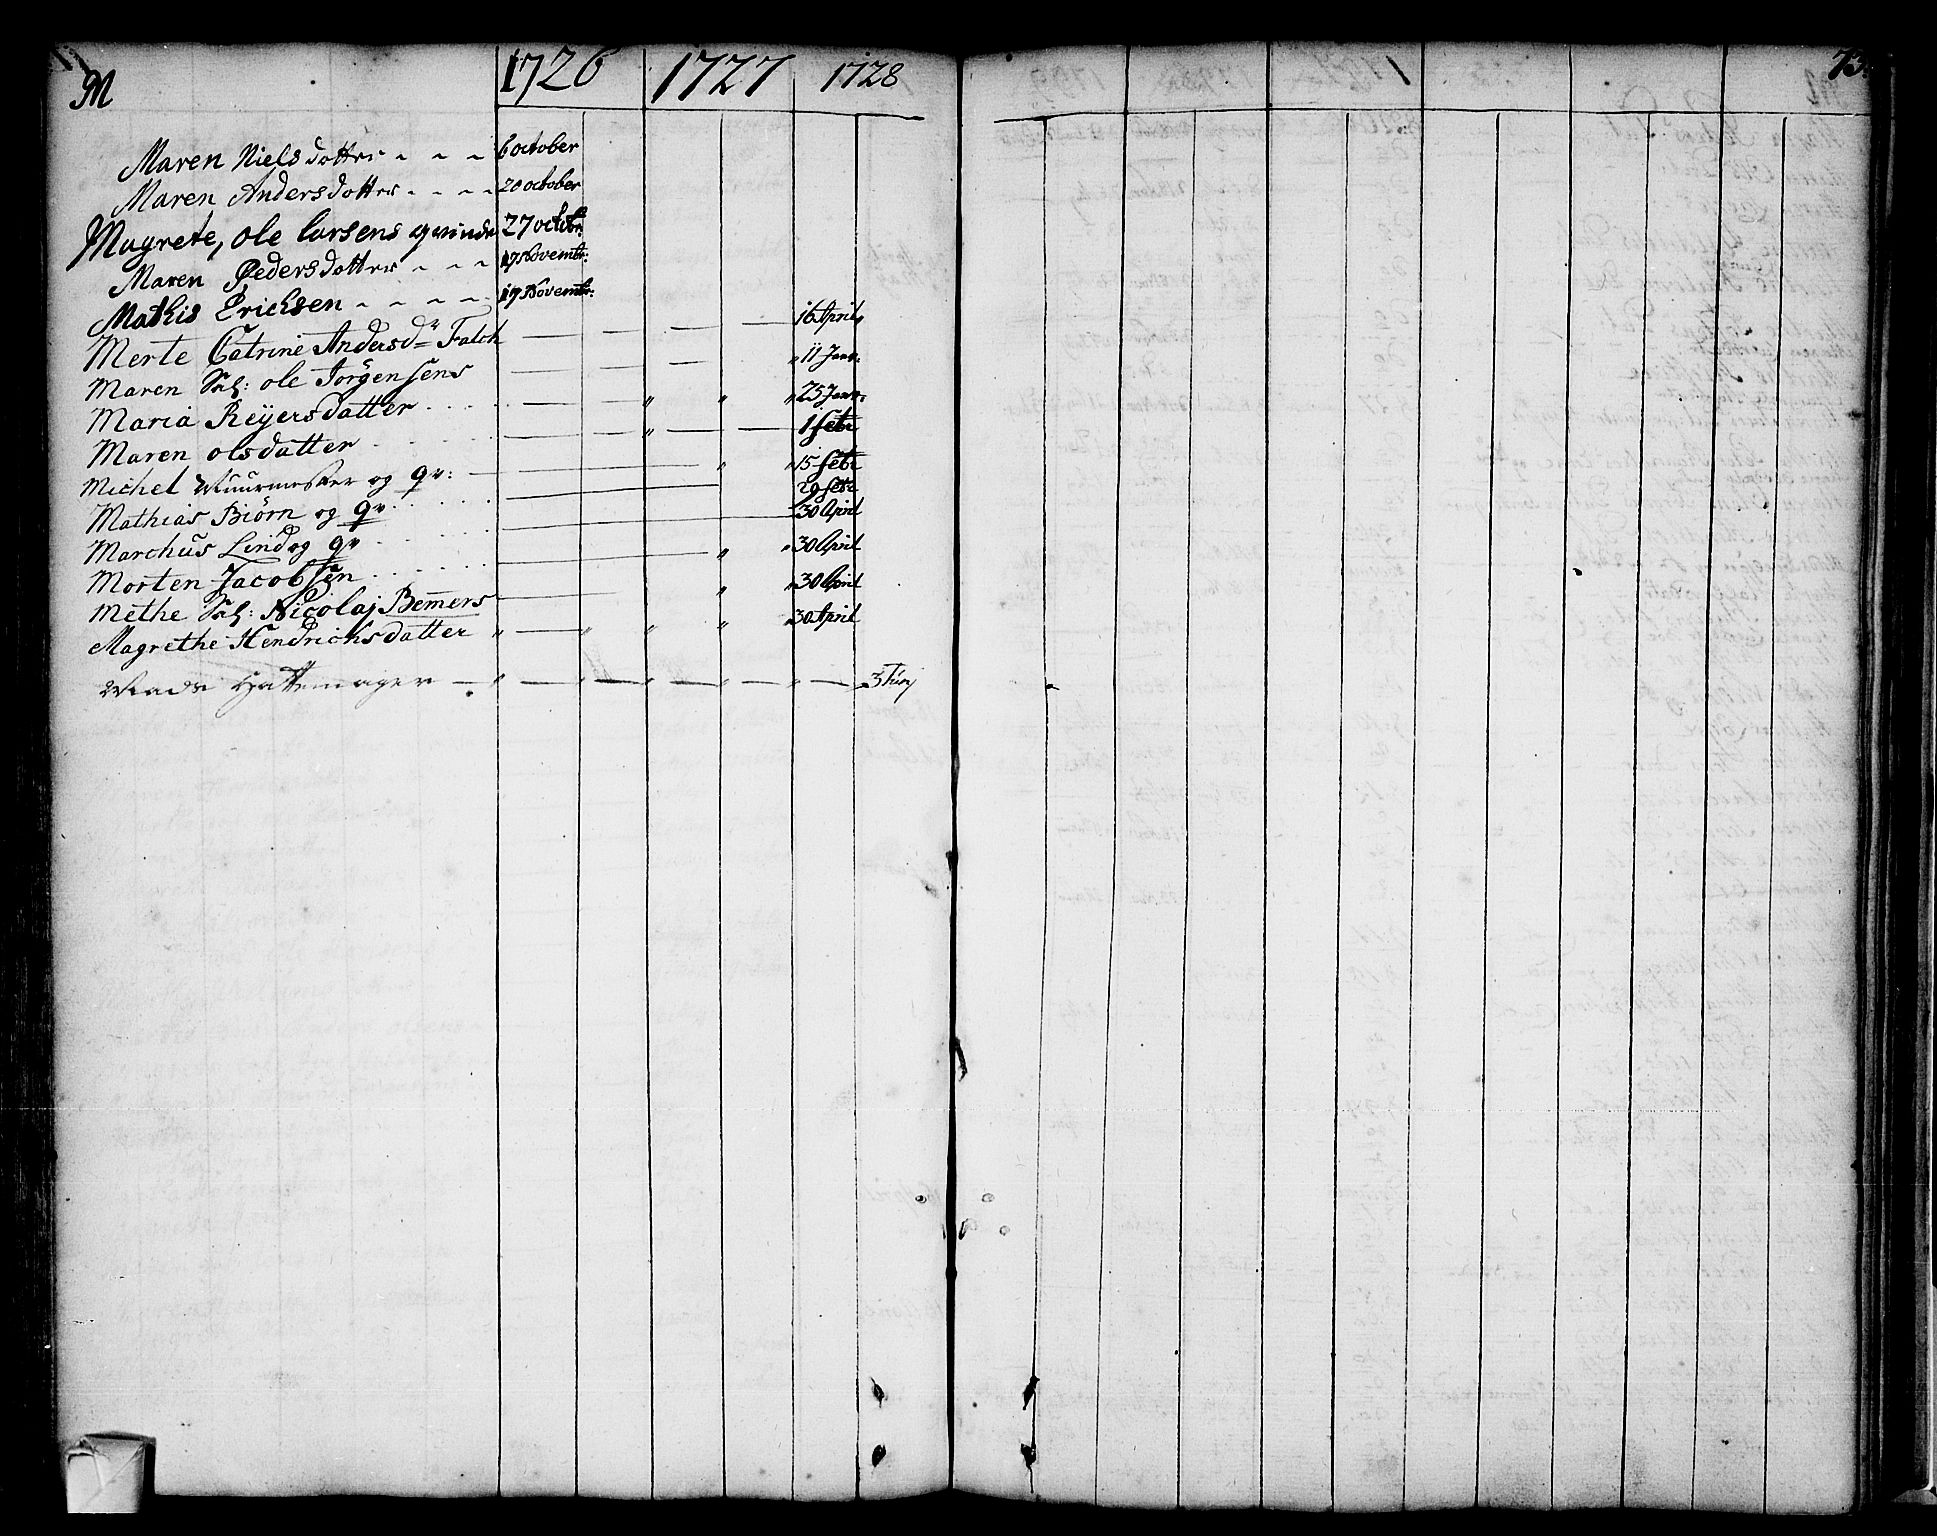 M 1726 1727 1728 73.
Maren Nielsdotter 6 october
Maren Andersdotter 20 october
Magrete, ole larsens qvinde 27 octobr:
Maren Pedersdotter 17 Novembr:
Mathis Erichsen 17 Novembr:
Merte Catrine Andersdr Falch 16 April
Maren Sal: ole Jörgensens 11 Janr:
Maria Reÿersdatter 25 Janr:
Maren olsdatter 1 febr
Michel Muurmester og qv: 15 febr
Mathias Biörn og qv 29 febr
Marchus Lind og qv 30 April
Morten Jacobsen 30 April
Methe Sal: Nicolaj Bemers 30 April
Magrethe Hendrichsdatter 30 April
Mads Hattemager 3